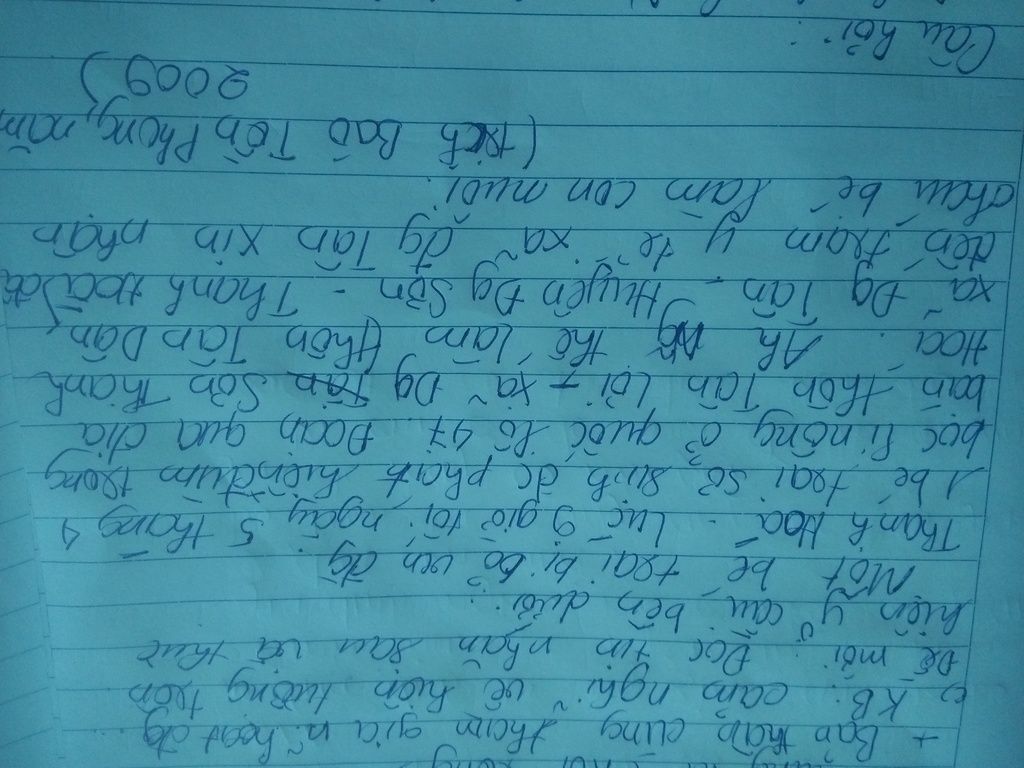 + Bản thân cùng tham gia n~ hoạt đg
c) KB: cảm nghĩ về hiện tượng trên
Đề mới: Đọc tin nhắn sau và thực
hiện y/ cầu bên dưới:
Một bé trai bị bỏ ven đg
Thanh Hoá - Lúc 9 giờ tối ngày 5 tháng 1
1 bé trai sơ sinh đc phát hiện trong
bọc li nông ở quốc lộ 47. Đoạn qua địa
bàn thôn Tân Lợi - xã Dg Sơn Thanh
Hoá. Ah thế Lâm (thôn Tân Dân,
xã Dg Tân - Huyện Đg Sơn - Thanh Hoá)
đến trạm y tế xã đg Tân xin nhận
cháu bé làm con nuôi.
(trích Báo Tiền Phong, năm
2009)
Câu hỏi: